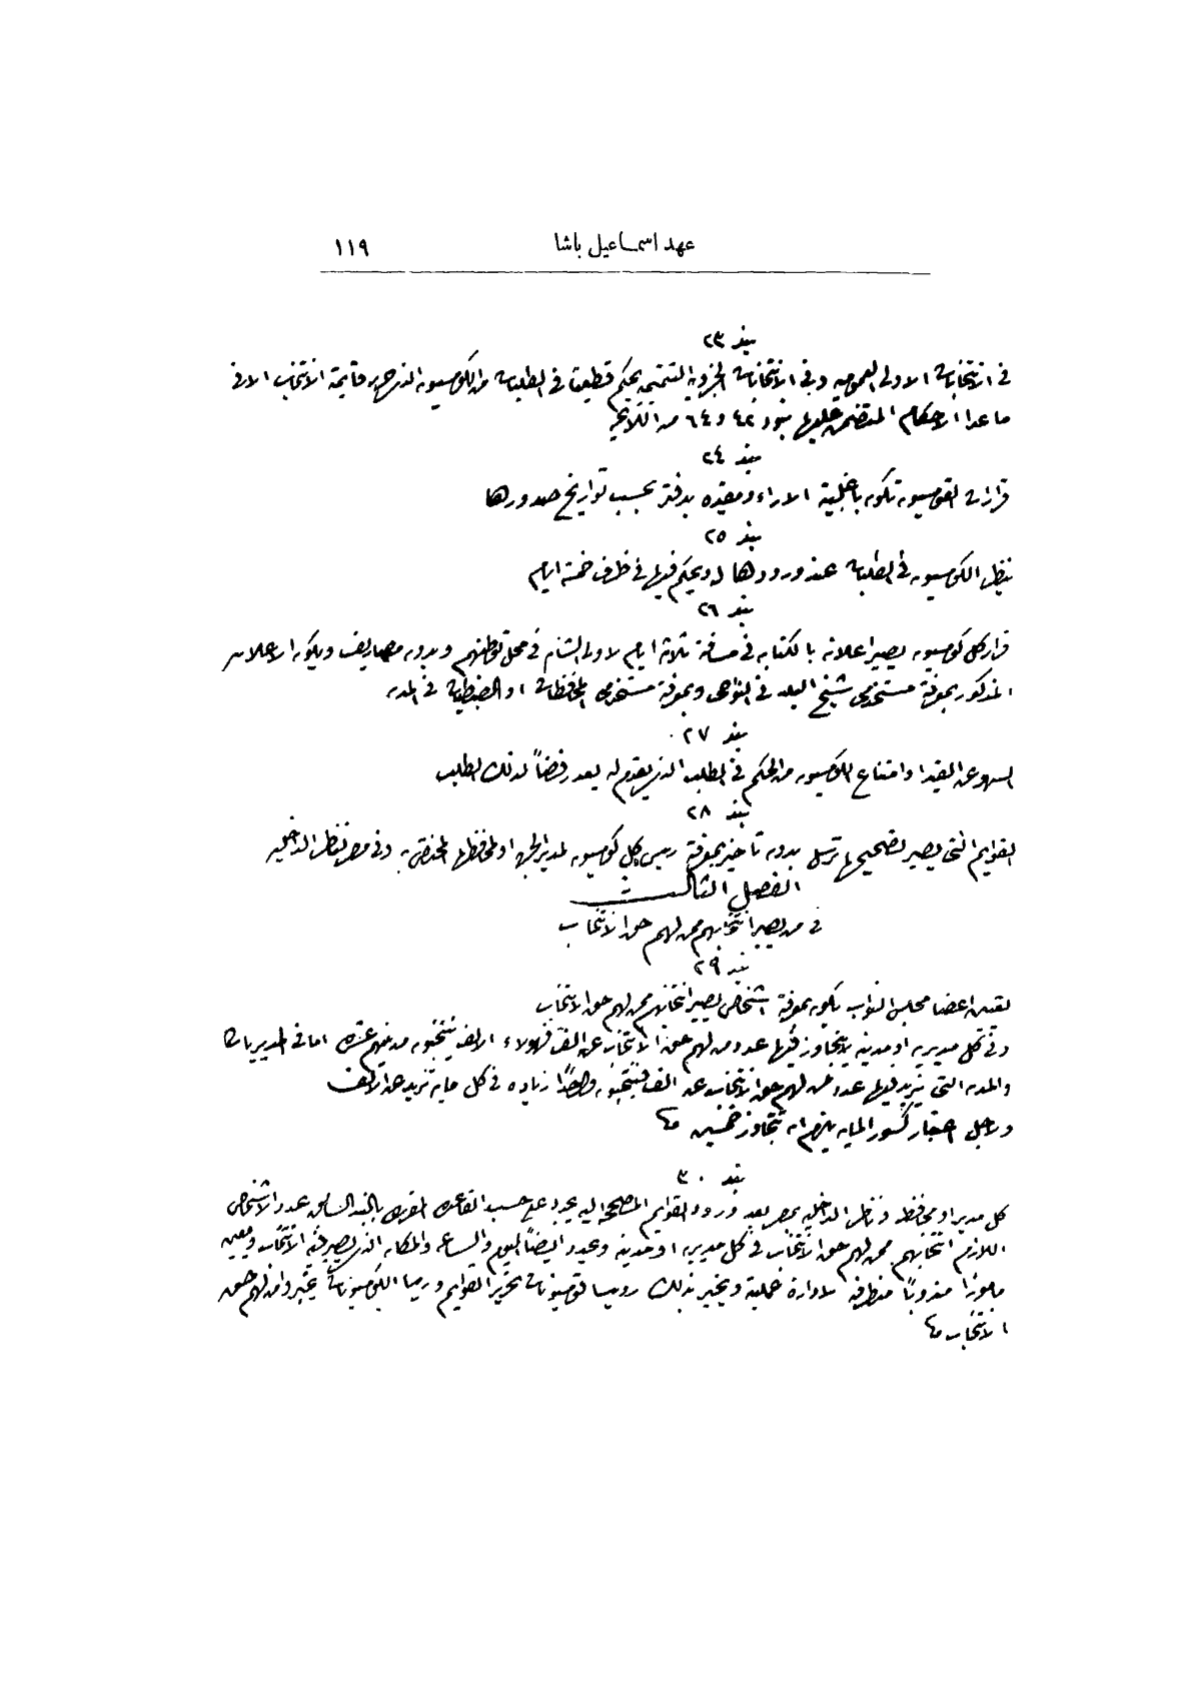 عهد اسماعيل باشا ١١٩
بند ٢٣
في انتخابات الاولى العمومية وفي الانتخابات الجزوية التتميمية يحكم قطعيا في الطلبات من الكومسيون الذي حرر قايمة الانتخاب الا في
ما عدا الاحكام المتضمن عليها بنود ٤٢ و ٦٤ من اللايحة
بند ٢٤
قرارات القومسيون تكون باغلبية الاراء ومقيده بدفتر بحسب تواريخ صدورها
بند ٢٥
ينظر الكومسيون في الطلبات عند ورودها له ويحكم فيها في ظرف خمسة ايام
بند ٢٦
قرار كل كومسيون يصير اعلانه بالكتابه في مسافة ثلاثة ايام لاولى الشان في محل توطنهم وبدون مصاريف ويكون الاعلان
المذكور بمعرفة مستخدمى شيخ البلد في النواحى وبمعرفة مستخدمى المحافظات او الضبطيات في المدن
بند ٢٧
السهو عن القيد او امتناع الكومسيون من الحكم في الطلب الذي يقدم له يعد رفضاً لذلك الطلب
بند ٢٨
القوايم التى يصير تصحيحها ترسل بدون تاخير بمعرفة رييس كل كومسيون لمدير الجهة او لمحافظها المختص به وفي مصر لناظر الداخليه
الفصل الثالث
في من يصير انتخابهم ممن لهم حق الانتخاب
بند ٢٩
تعيين اعضا مجلس النواب يكون بمعرفة اشخاص يصير انتخابهم ممن لهم حق الانتخاب
وفي كل مديريه او مدينه لا يتجاوز فيها عدد من لهم حق الانتخاب عن الف فهولاء الالف ينتخبون من بينهم عشره اما في المديريات
والمدن التى يزيد فيها عدد من لهم حق الانتخاب عن الف فينتخبون واحدًا زياده في كل مايه تزيد عن الالف
ولاجل اعتبار كسور المايه يلزم ان تتجاوز خمسين
بند ٣٠
كل مدير او محافظ وناظر الداخليه بمصر بعد ورود القوايم المصححه اليه يحدد على حسب القاعده المقرره بالبند السابق عدد الاشخاص
اللازم انتخابهم ممن لهم حق الانتخاب في كل مديريه او مدينه ويحدد ايضاً اليوم والساعه والمكان الذي يصير فيه الانتخاب ويعين
مامورًا مندوباً من طرفه لادارة عملية ويخبر بذلك روسا قومسيونات تحرير القوايم وروسا الكومسيونات يخبروا من لهم حق
الانتخاب